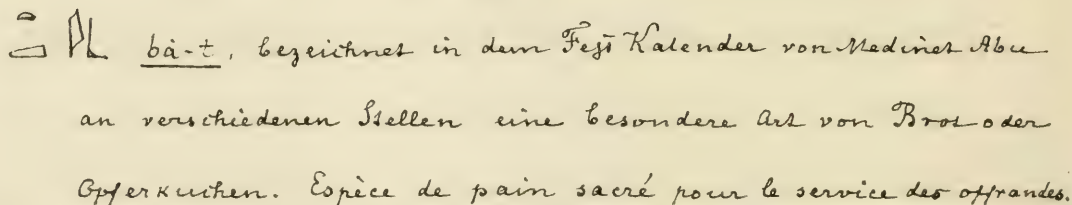 bà-t, bezeichnet in dem Fest Kalender von Medinet Abu
an verschiedenen Stellen eine besondere Art von Brot oder
Opferkuchen. Espèce de pain sacré pour le service des offrandes.